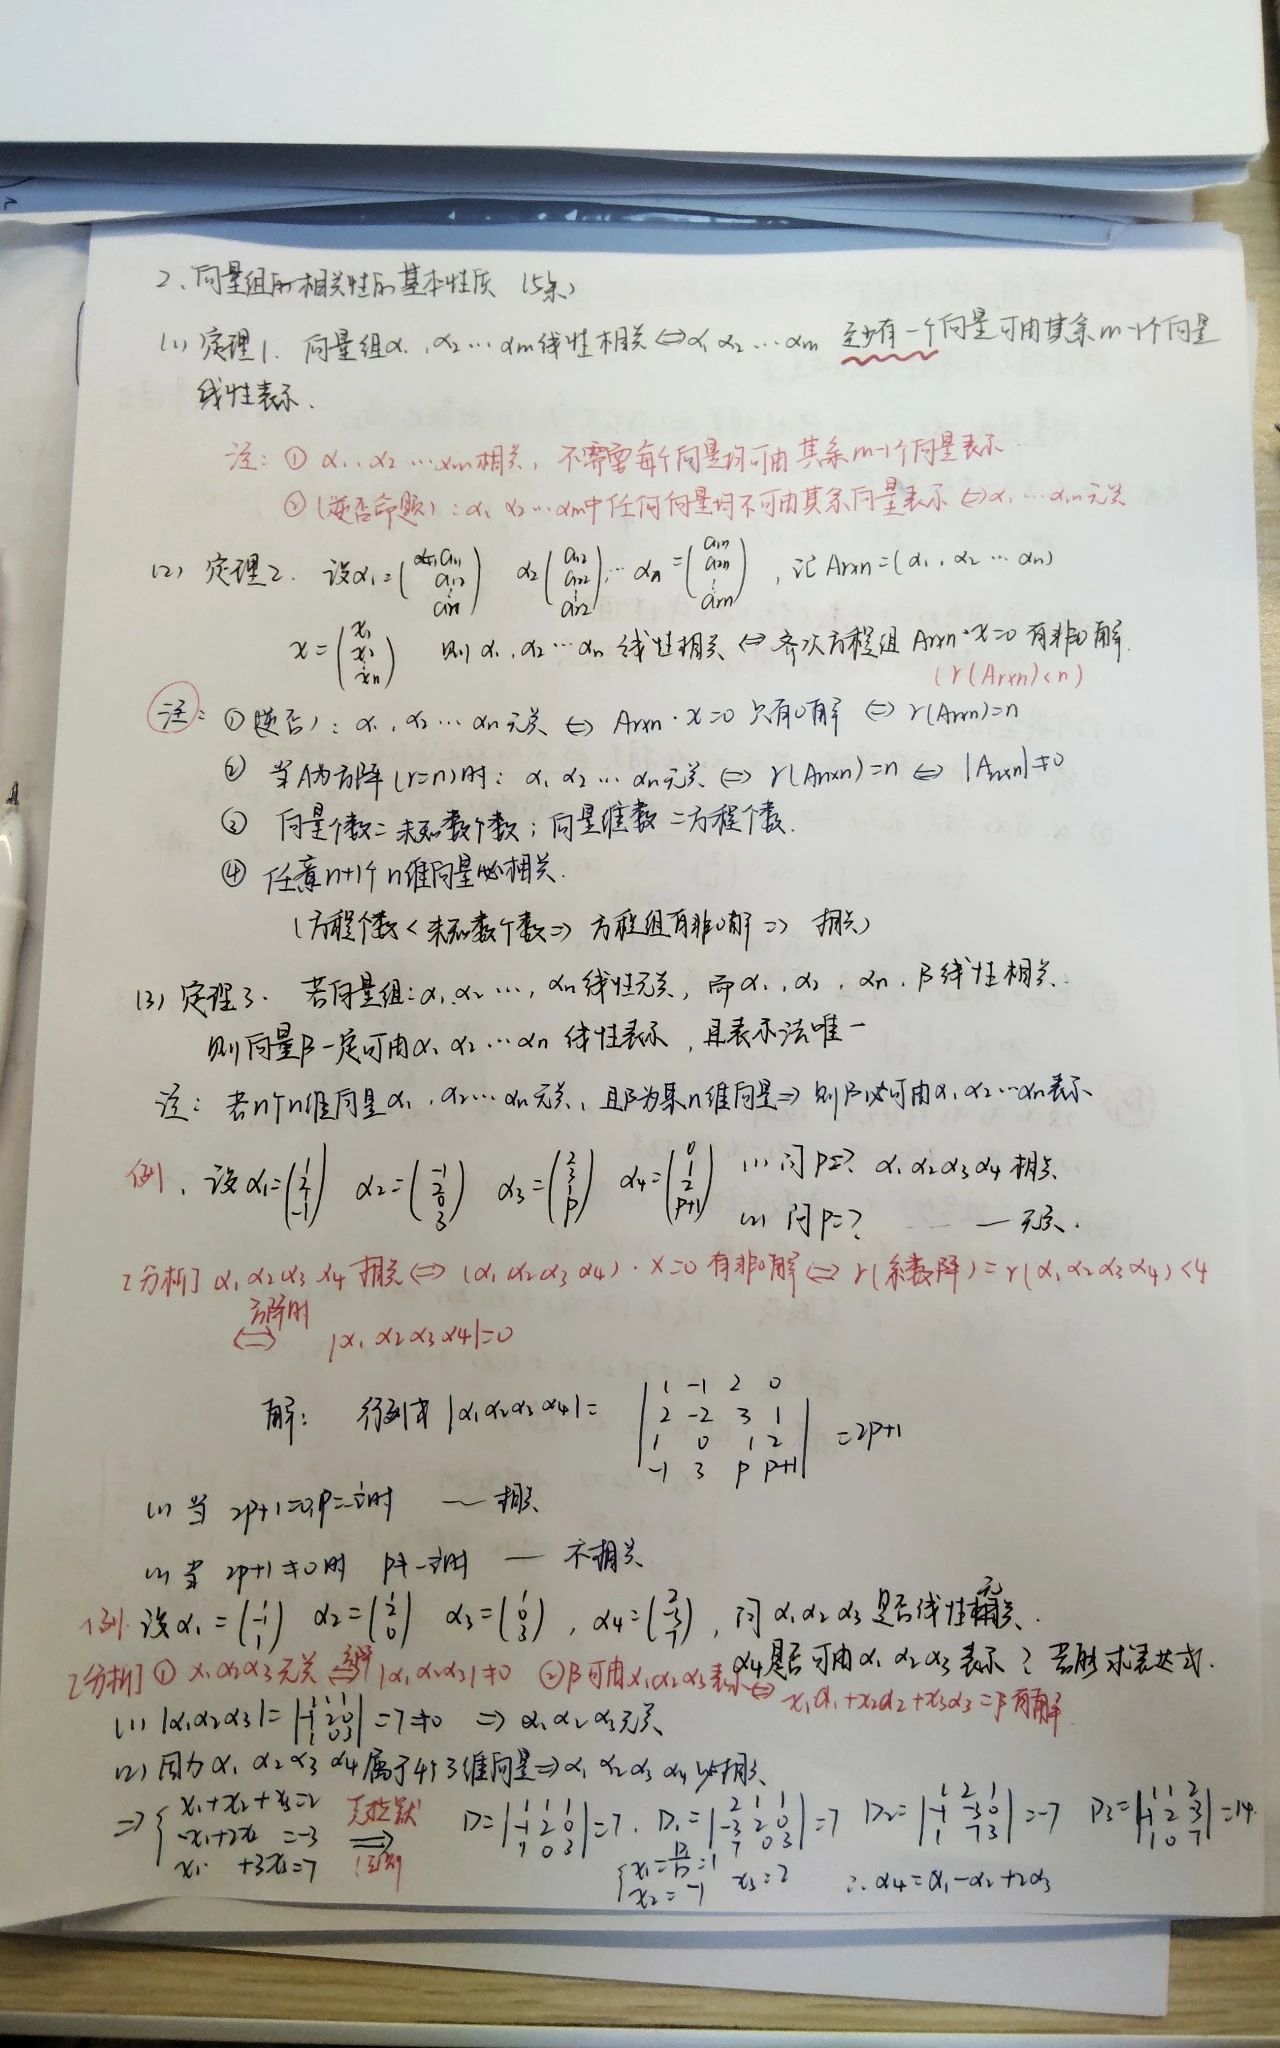 2、向量组的相关性的基本性质 (5条)
(1) 定理1. 向量组α₁,α₂…αm线性相关⇔α₁ α₂…αm 至少有一个向量可由其余m-1个向量
线性表示.
注: ① α₁,α₂…αm相关, 不需要每个向量均可由其余m-1个向量表示.
②(逆否命题): α₁ α₂…αm中任何向量均不可由其余向量表示⇔α₁…αm无关
(2) 定理2. 设α₁=(a₁₁ a₁₂ ⋮ ) α₂(a₁₂ a₂₂ ⋮ ar2)… αn=(a₁n a₂n ⋮ arn), 记Ar×n=(α₁,α₂…αn)
x=(x₁ x₂ ⋮ xn) 则α₁,α₂…αn线性相关⇔齐次方程组Ar×n·x=0有非0解.
(r(Ar×n)<n)
注: ①(逆否): α₁,α₂…αn无关⇔Ar×n·x=0只有0解⇔r(Ar×n)=n
② 当A为方阵(r=n)时: α₁ α₂…αn无关⇔r(An×n)=n⇔|An×n|≠0
③ 向量个数=未知数个数; 向量维数=方程个数.
④ 任意n+1个n维向量必相关.
(方程个数<未知数个数⇒方程组有非0解⇒相关)
(3) 定理3. 若向量组:α₁,α₂…,αn线性无关, 而α₁,α₂,αn,β线性相关.
则向量β一定可由α₁ α₂…αn线性表示, 且表示法唯一
注: 若n个n维向量α₁,α₂…αn无关, 且β为某n维向量⇒则β必可由α₁ α₂…αn表示
例、设α₁=(1 2 1 -1) α₂=(-1 -2 0 3) α₃=(2 3 1 p) α₄=(0 1 2 p+1) (1) 问P=? α₁α₂α₃α₄相关
(2) 问P=? —— 无关.
[分析] α₁α₂α₃α₄相关⇔(α₁α₂α₃α₄)·x=0有非0解⇔r(系数阵)=r(α₁α₂α₃α₄)<4
方阵时
⇔ |α₁ α₂ α₃ α₄|=0
解: 行列式|α₁α₂α₃α₄|= |1 -1 2 0
2 -2 3 1
1 0 1 2
-1 3 p p+1| =2p+1
(1) 当2p+1=0,p=-½时 — 相关
(2) 当2p+1≠0时 p≠-½时 — 不相关
例. 设α₁=(1 -1 1) α₂=(1 2 0) α₃=(1 0 3), α₄=(2 -3 7), 问α₁α₂α₃是否线性无关.
α₄是否可由α₁ α₂α₃表示? 若能求表达式.
[分析] ① α₁α₂α₃无关⇔|α₁α₂α₃|≠0 ②β可由α₁α₂α₃表示⇔x₁α₁+x₂α₂+x₃α₃=β有解
(1) |α₁α₂α₃|=|1 1 1 -1 2 0 1 0 3|=7≠0 ⇒ α₁α₂α₃无关
(2) 因为α₁ α₂α₃ α₄属于4个3维向量⇒α₁ α₂α₃α₄必相关
⇒{x₁+x₂+x₃=2
-x₁+2x₂ =-3
x₁ +3x₃=7
克拉默
⇒
法则
D=|1 1 1 -1 2 0 1 0 3|=7. D₁=|2 1 1 -3 2 0 7 0 3|=7 D₂=|1 2 1 -1 -3 0 1 7 3|=-7 D₃=|1 1 2 -1 2 -3 1 0 7|=14.
{x₁=D₁/D=1
x₂=-1 x₃=2 ∴α₄=α₁-α₂+2α₃